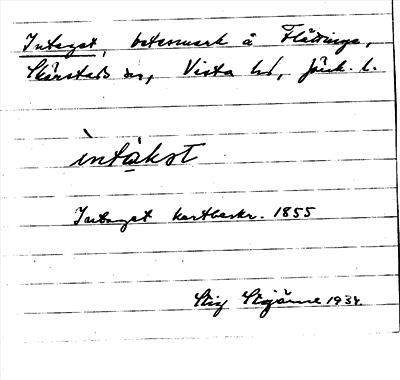 Intaget, betesmark å Flättinge,
Skärstads sn, Vista hd, Jönk. l.
ìntàkət
Intaget kartbeskr. 1855
Stig 1934.